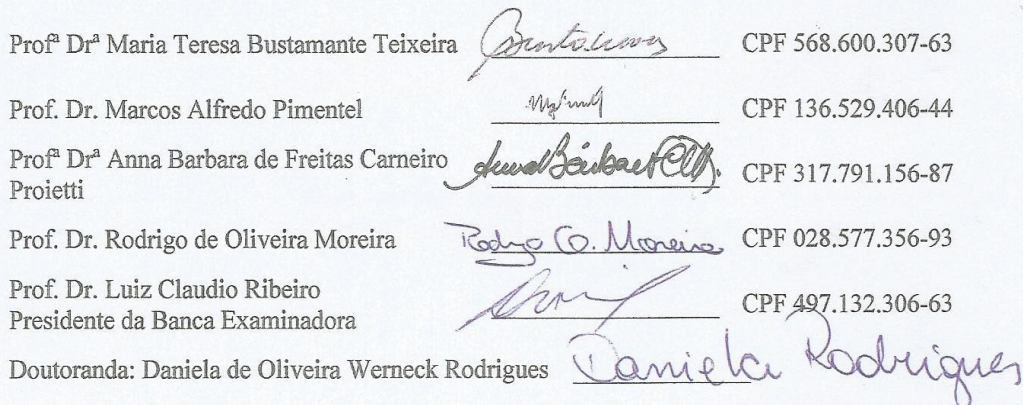 Profª Drª Maria Teresa Bustamante Teixeira CPF 568.600.307-63
Prof. Dr. Marcos Alfredo Pimentel CPF 136.529.406-44
Profª Drª Anna Barbara de Freitas Carneiro
Proietti CPF 317.791.156-87
Prof. Dr. Rodrigo de Oliveira Moreira Rodrigo O. Moreira CPF 028.577.356-93
Prof. Dr. Luiz Claudio Ribeiro
Presidente da Banca Examinadora CPF 497.132.306-63
Doutoranda: Daniela de Oliveira Werneck Rodrigues Daniela Rodrigues